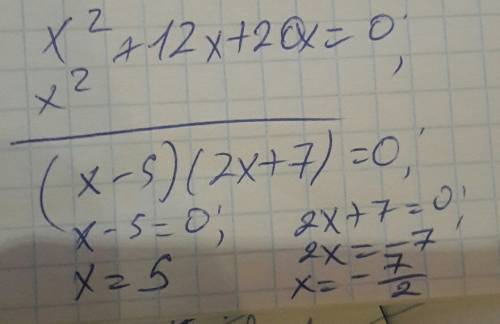 x² + 12x + 20x = 0;
x²
(x - 5)(2x + 7) = 0;
x - 5 = 0; 2x + 7 = 0;
2x = -7
x = 5 x = -7/2